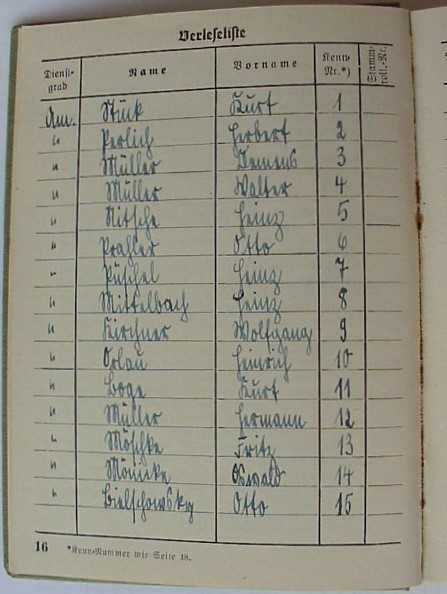 Verleseliste
Dienst-grad Name Vorname Kenn-Nr.*) Stamm-roll.-Nr.
Am. Stück Kurt 1
" Perlich Herbert 2
" Müller Klemens 3
" Müller Walter 4
" Nitsche Heinz 5
" Prahler Otto 6
" Püschel Heinz 7
" Mittelbach Heinz 8
" Kirchner Wolfgang 9
" Orlau Heinrich 10
" Boge Kurt 11
" Müller Hermann 12
" Möschke Fritz 13
" Mönicke Oswald 14
" Bielschowsky Otto 15
16 *Kenn-Nummer wie Seite 18.